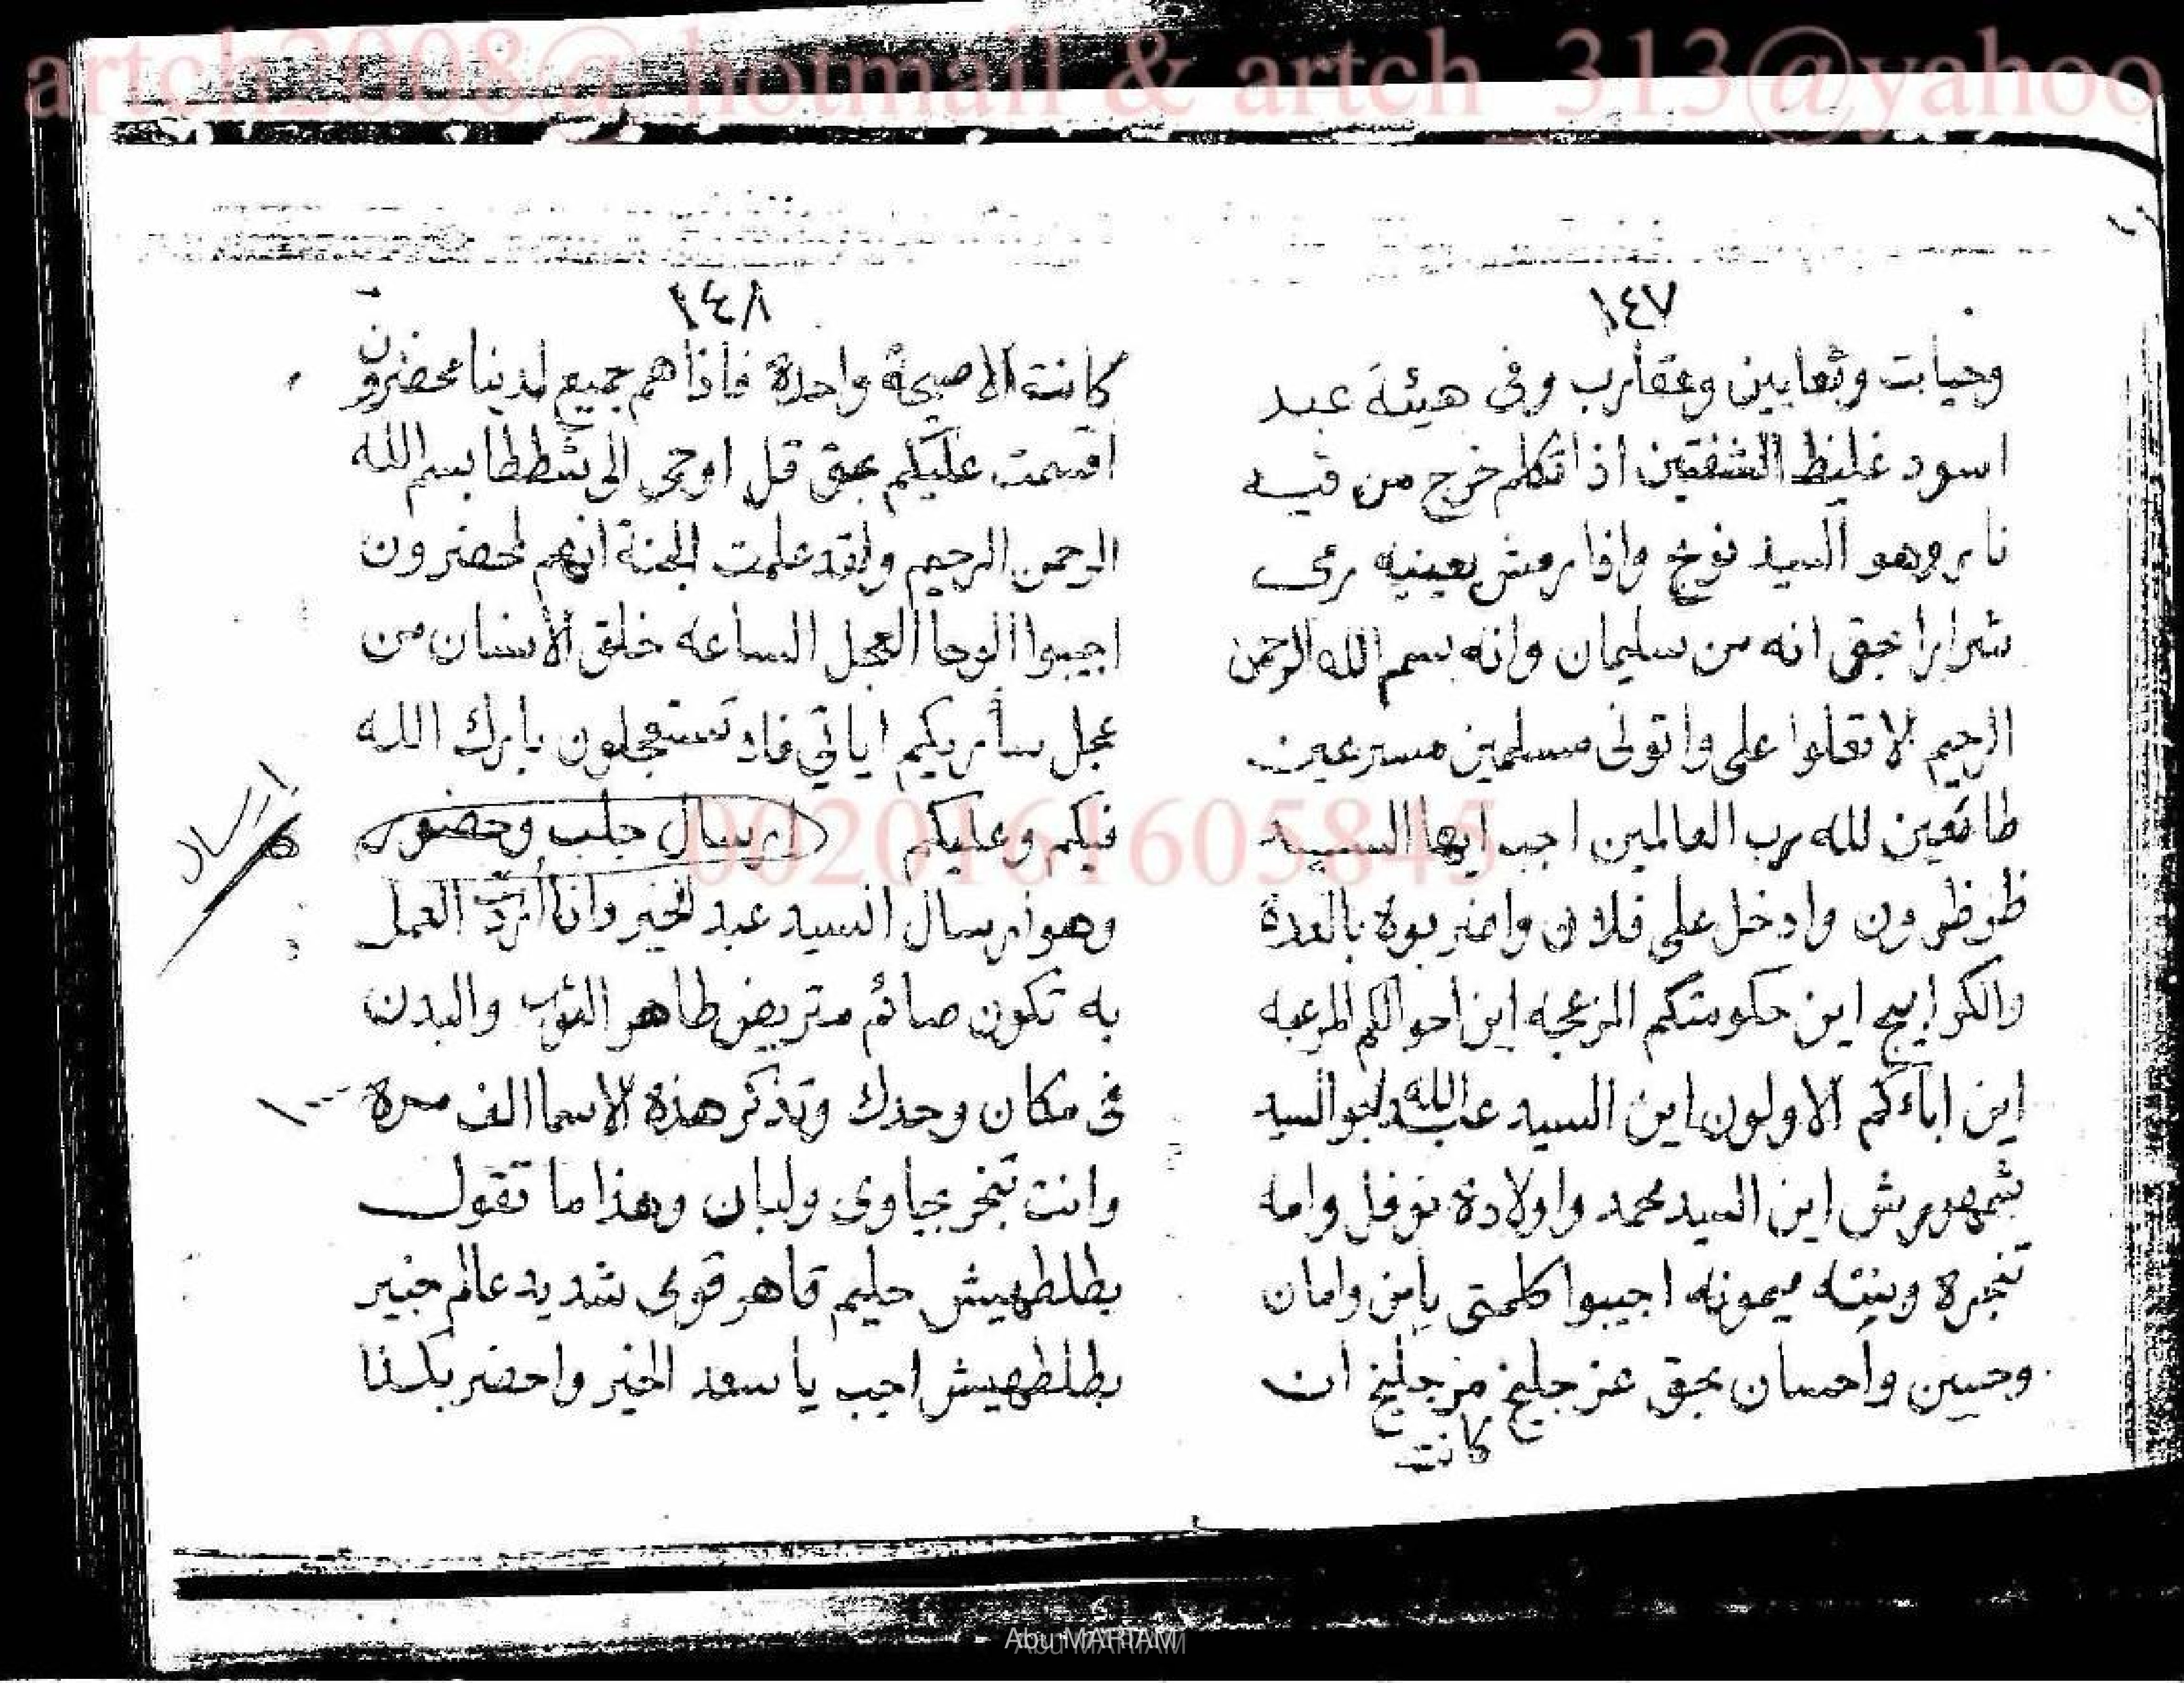 artch2008@ hotmail & artch_313@yahoo
١٤٧
وحيات وثعابين وعقارب وفى هيئة عبد
اسود غليظ الشفتين اذا تكلم خرج من فيه
نار وهو السيد نوخ واذا رمش بعينيه رمى
شرارا بحق انه من سليمان وانه بسم الله الرحمن
الرحيم لا تعلوا على واتونى مسلمين مسرعين
طائعين لله رب العالمين اجب ايها السيد
ظوظرون وادخل على فلان واضربوه بالعدة
والكرابيج اين حكومتكم المزعجه اين احوالكم المرعبه
اين اباءكم الاولون اين السيد عبد الله ابو السيد
شمهورش اين السيد محمد واولاده نوفل وامه
تنجره وبنته ميمونه اجيبوا كلمتى بامن وامان
وحسن واحسان بحق عزجليخ مزجليخ ان
كانت
١٤٨
كانت الا صيحة واحدة فاذا هم جميع لدينا محضرون
اقسمت عليكم بحق قل اوحى الى شططا بسم الله
الرحمن الرحيم ولقد علمت الجنة انهم لمحضرون
اجيبوا الوحا العجل الساعه خلق الانسان من
عجل سأريكم اياتي فلا تستعجلون بارك الله
فيكم وعليكم ارسال جلب وحضور
وهو ارسال السيد عبد الخير وانا أردت العمل
به تكون صائم متريض طاهر الثوب والبدن
فى مكان وحدك وتذكر هذه الاسما الف مرة ١٠٠٠
وانت تبخر بجاوى ولبان وهذا ما تقول
بطلطهيش حليم قاهر قوى شديد عالم خبير
بطلطهيش اجب يا سعد الخير واحضر بكذا
ارسال
0020161605845
Abu MARIAM